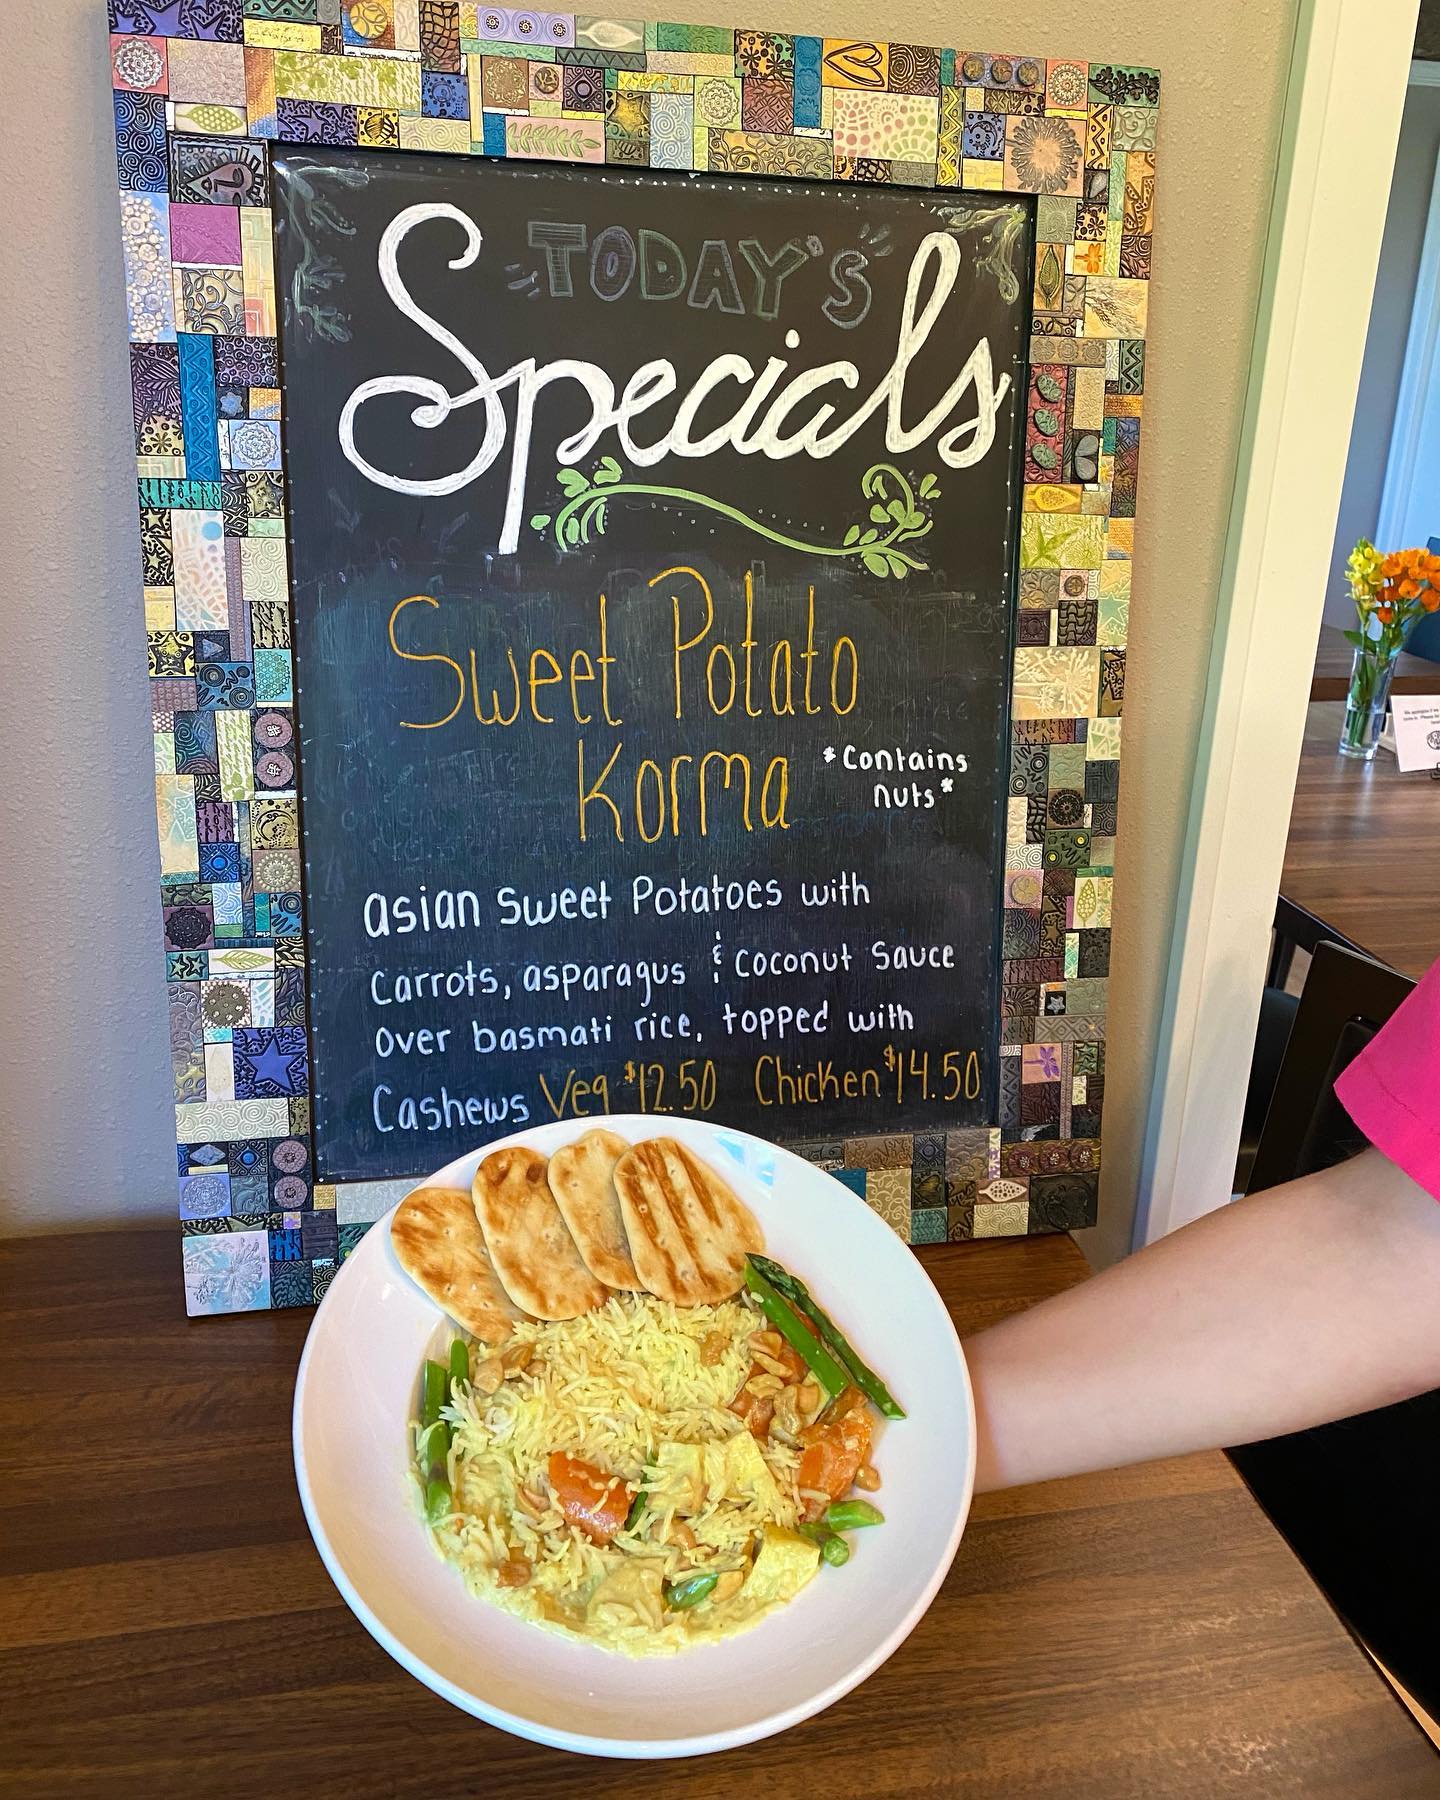 TODAY'S
Specials
Sweet Potato
Korma
*Contains
nuts*
asian Sweet Potatoes with
Carrots, asparagus & Coconut Sauce
over basmati rice, topped with
Cashews Veg $12.50 Chicken $14.50